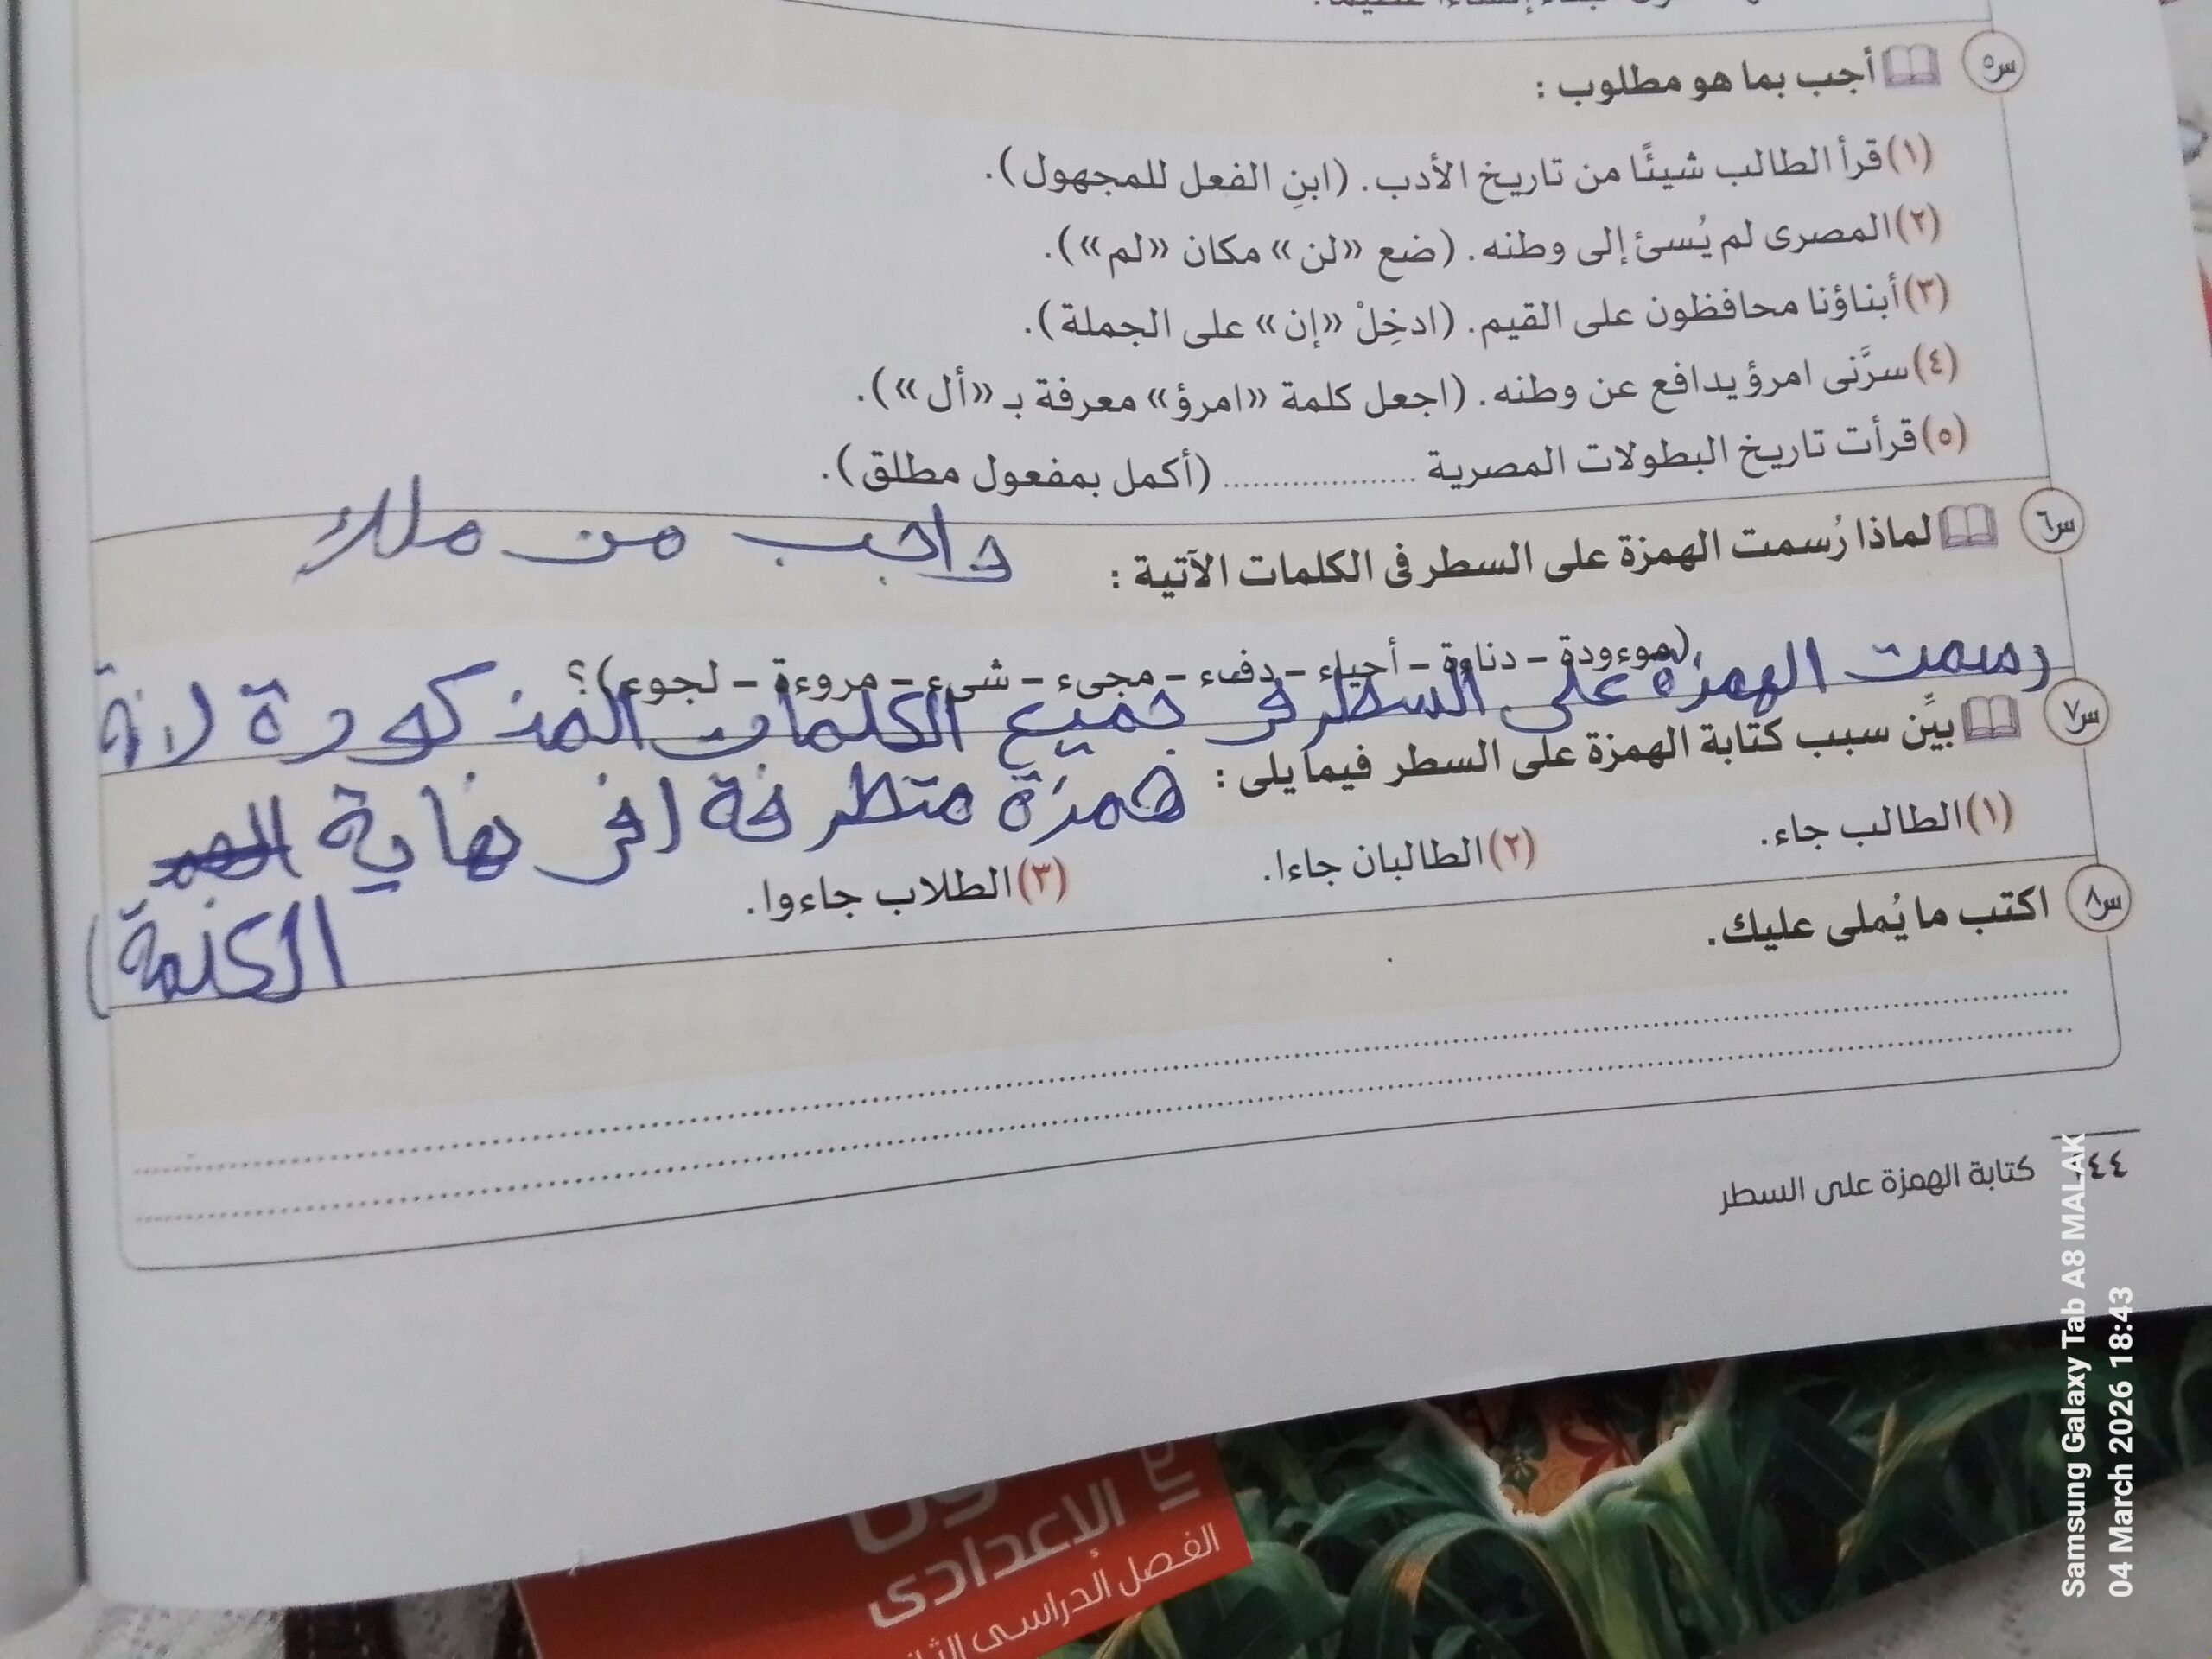 س٥ أجب بما هو مطلوب :
(١) قرأ الطالب شيئًا من تاريخ الأدب. (ابنِ الفعل للمجهول).
(٢) المصرى لم يُسئ إلى وطنه. (ضع «لن» مكان «لم»).
(٣) أبناؤنا محافظون على القيم. (ادخِلْ «إن» على الجملة).
(٤) سرَّنى امرؤ يدافع عن وطنه. (اجعل كلمة «امرؤ» معرفة بـ «أل»).
(٥) قرأت تاريخ البطولات المصرية .................... (أكمل بمفعول مطلق).
س٦ لماذا رُسمت الهمزة على السطر فى الكلمات الآتية :
واجب من ملك
(موءودة - دناءة - أحياء - دفء - مجىء - شىء - مروءة - لجوء) ؟
رسمت الهمزة على السطر في جميع الكلمات المذكورة لانة
همزة متطرفة (في نهاية
الكلمة)
س٧ بيِّن سبب كتابة الهمزة على السطر فيما يلى :
(١) الطالب جاء.
(٢) الطالبان جاءا.
(٣) الطلاب جاءوا.
س٨ اكتب ما يُملى عليك.
٤٤ كتابة الهمزة على السطر
الإعدادى
الفصل الدراسى
Samsung Galaxy Tab A8 MALAK
04 March 2026 18:43